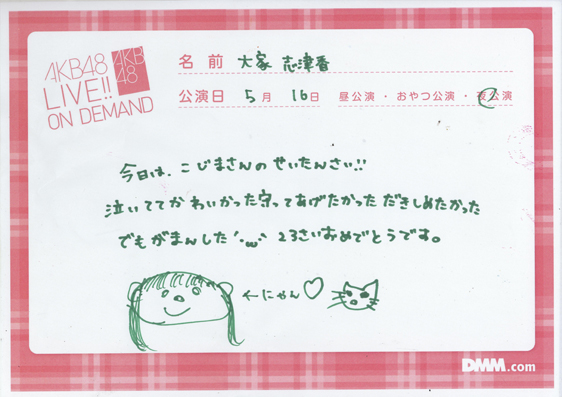 AKB48
LIVE!!
ON DEMAND
AKB
48
名前 大家 志津香
公演日 5月 16日 昼公演・おやつ公演・夜公演
今日は、こじまさんのせいたんさい!!
泣いててかわいかった守ってあげたかった だきしめたかった
でもがまんした´･ω･` 23さいおめでとうです。
←にゃん♡
DMM.com